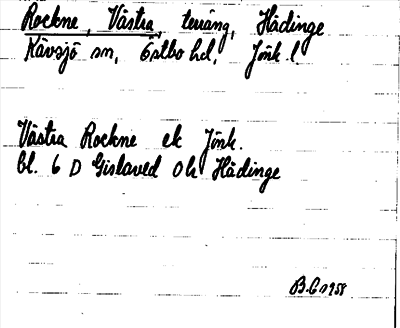 Rockne, Västra, terräng, Hädinge
Kävsjö sn, Östbo hd, Jönk l.
Västra Rockne ek Jönk.
bl. 6 D Gislaved Ok Hädinge
B.G 1958